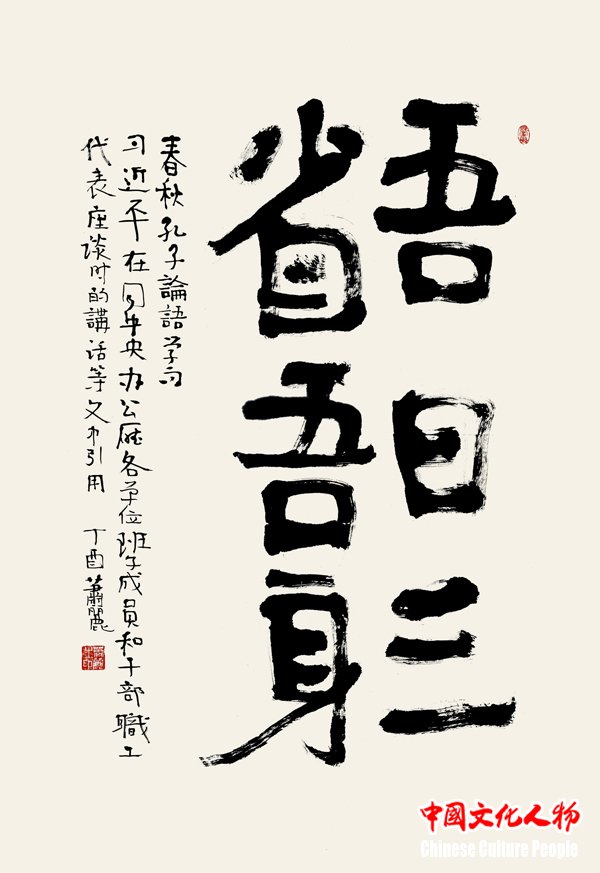 吾日三
省吾身
春秋孔子論語学而
习近平在同中央办公厛各单位班子成員和干部職工
代表座谈时的講话等文中引用 丁酉 蕭麗
中國文化人物
Chinese Culture People